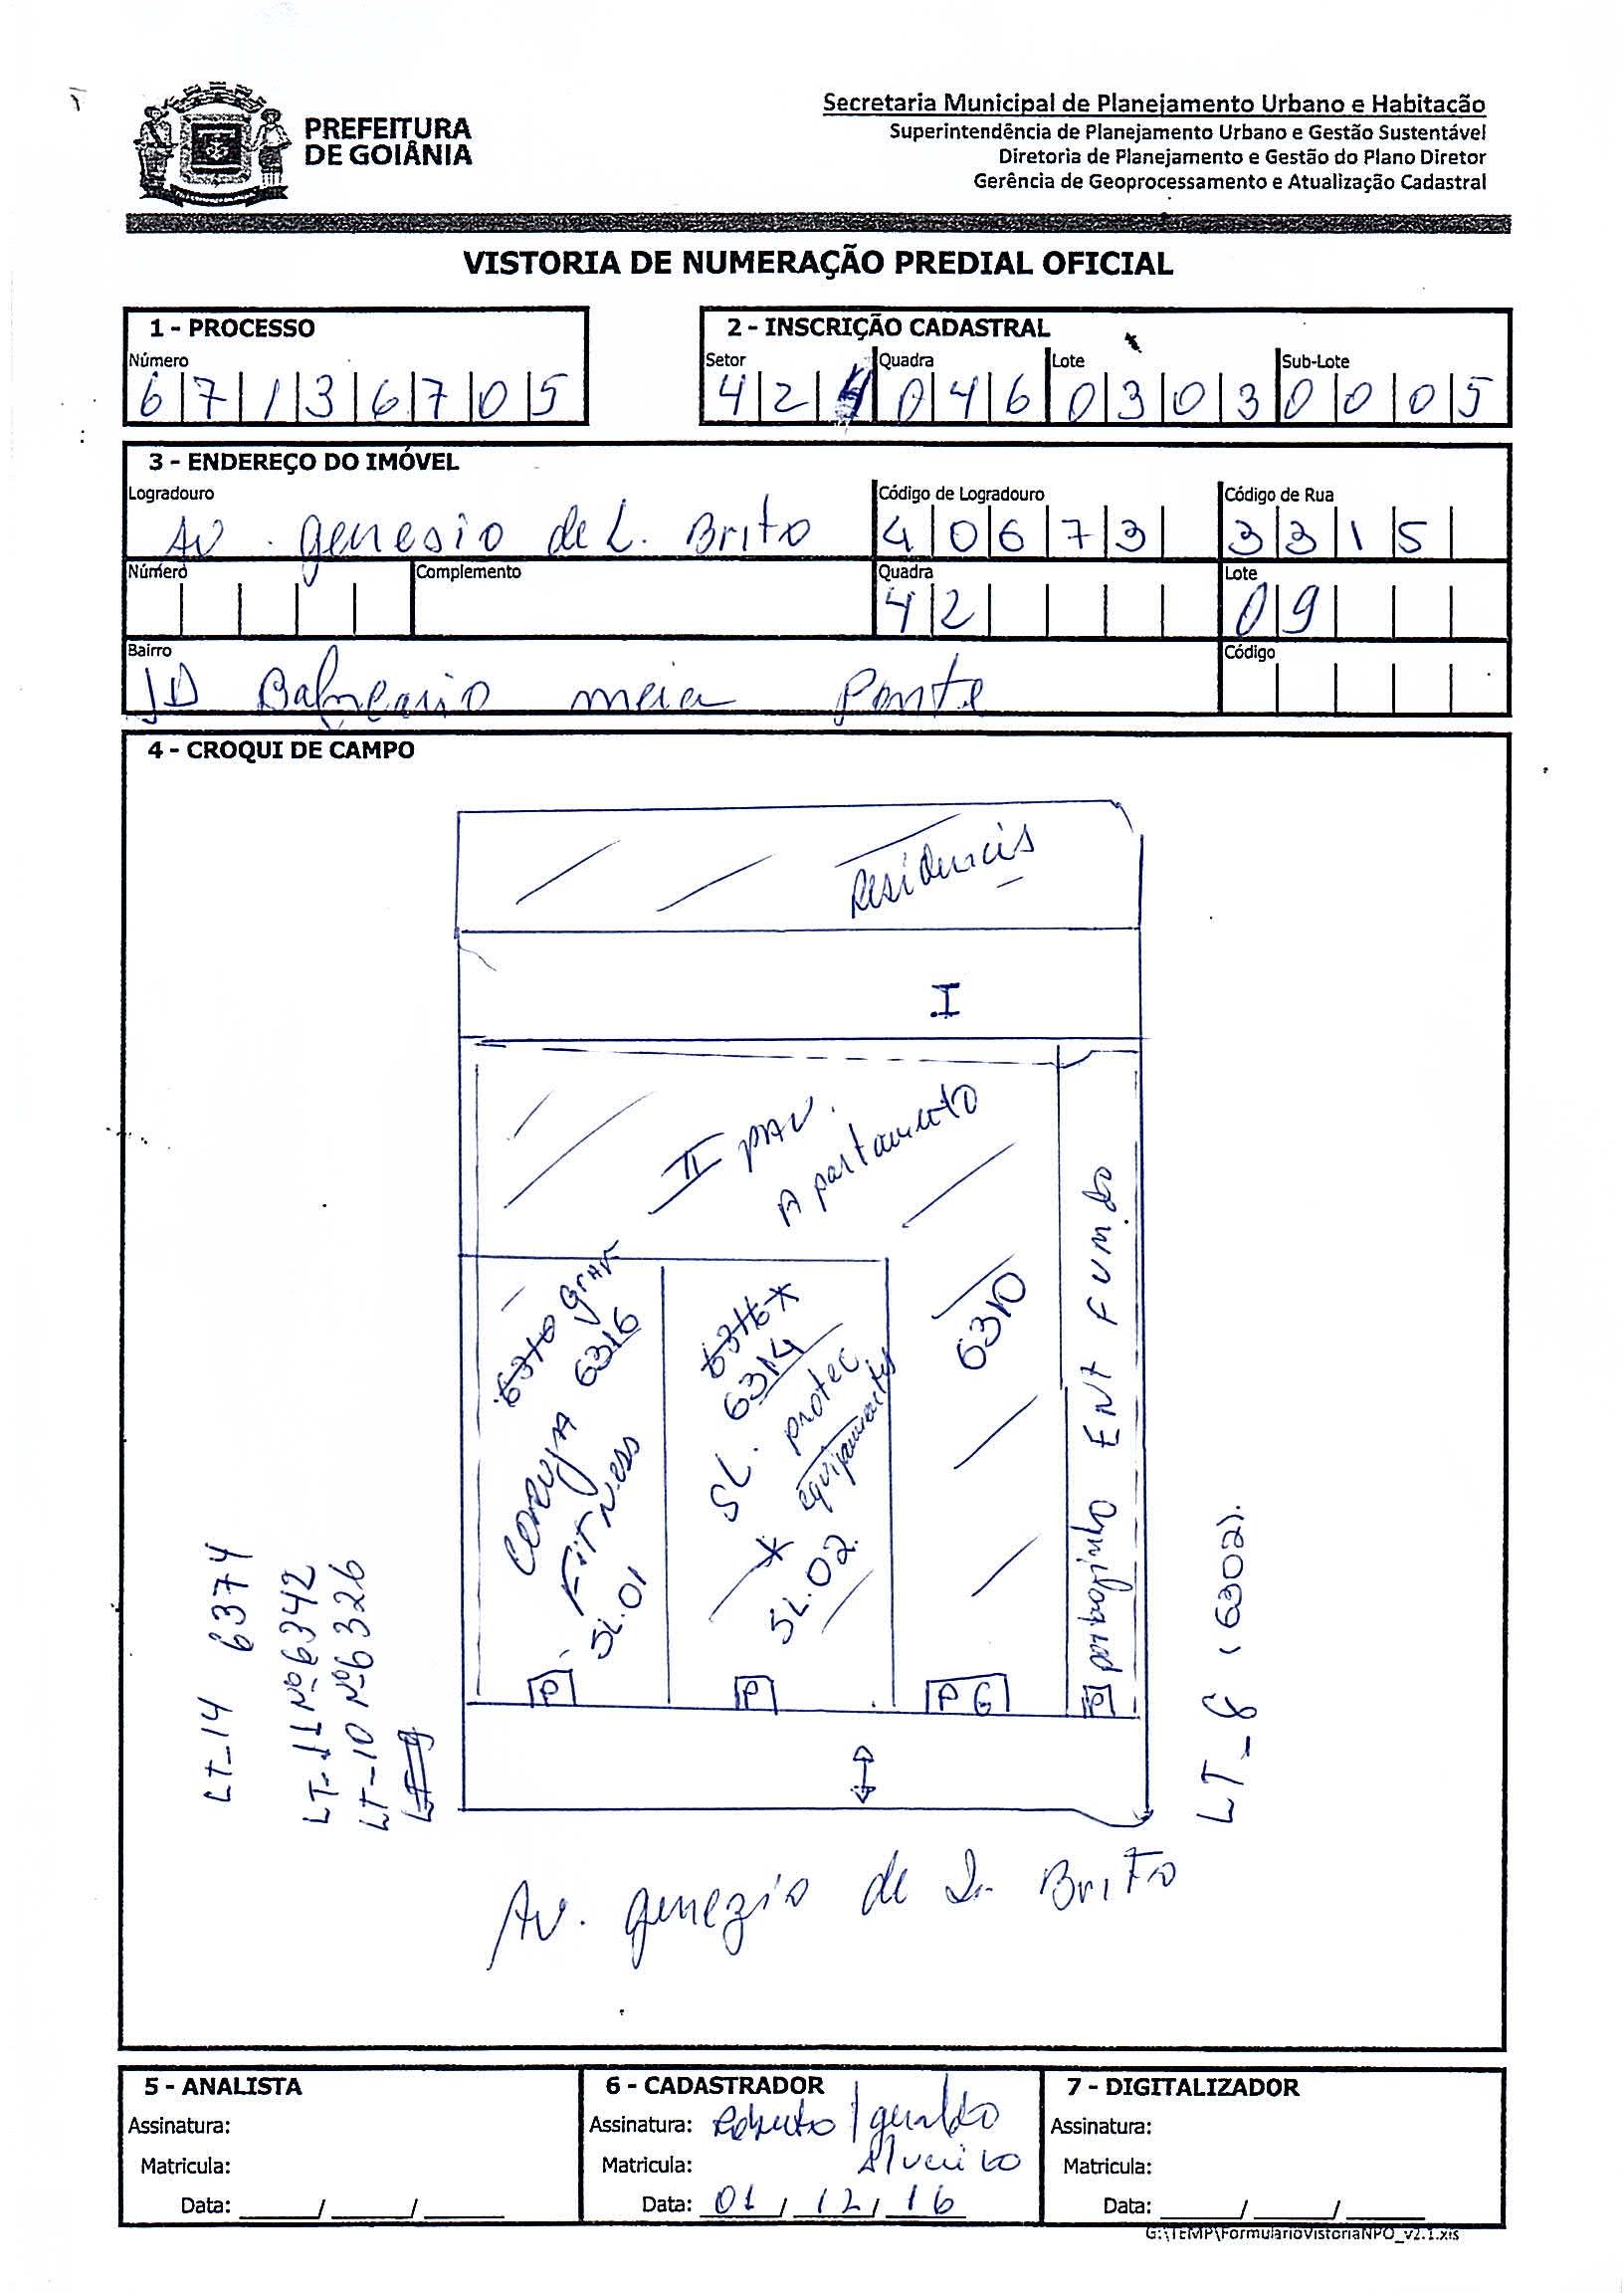 PREFEITURA
DE GOIÂNIA
Secretaria Municipal de Planejamento Urbano e Habitacão
Superintendência de Planejamento Urbano e Gestão Sustentável
Diretoria de Planejamento e Gestão do Plano Diretor
Gerência de Geoprocessamento e Atualização Cadastral
VISTORIA DE NUMERAÇÃO PREDIAL OFICIAL
1 - PROCESSO
Número
67136705
2 - INSCRIÇÃO CADASTRAL
Setor Quadra Lote Sub-Lote
42 046 0303 0005
3 - ENDEREÇO DO IMÓVEL
Logradouro Código de Logradouro Código de Rua
Av. genesio de L. Brito 40673 3315
Número Complemento Quadra Lote
42 09
Bairro Código
JD Balneario meia Ponte
4 - CROQUI DE CAMPO
Residencis
I
II PAV.
Apartamento
6310 grav
6316
CORUJA
FITNESS
SL.01
6316 *
6314
SL. protec
equipamentos
*
SL.02.
6310
portaozinho ENT FUNDO
P
P
P G
P
LT_14 6374
LT-11 Nº 6342
LT-10 Nº 6326
LT-9
LT_8 (6302).
Av. genezio de L. Brito
5 - ANALISTA
Assinatura:
Matricula:
Data: ____/____/____
6 - CADASTRADOR
Assinatura: Roberto / geraldo
Matricula:
Data: 01/12/16
7 - DIGITALIZADOR
Assinatura:
Matricula:
Data: ____/____/____
G:\TEMP\FormularioVistoriaNPO_v2.1.xls